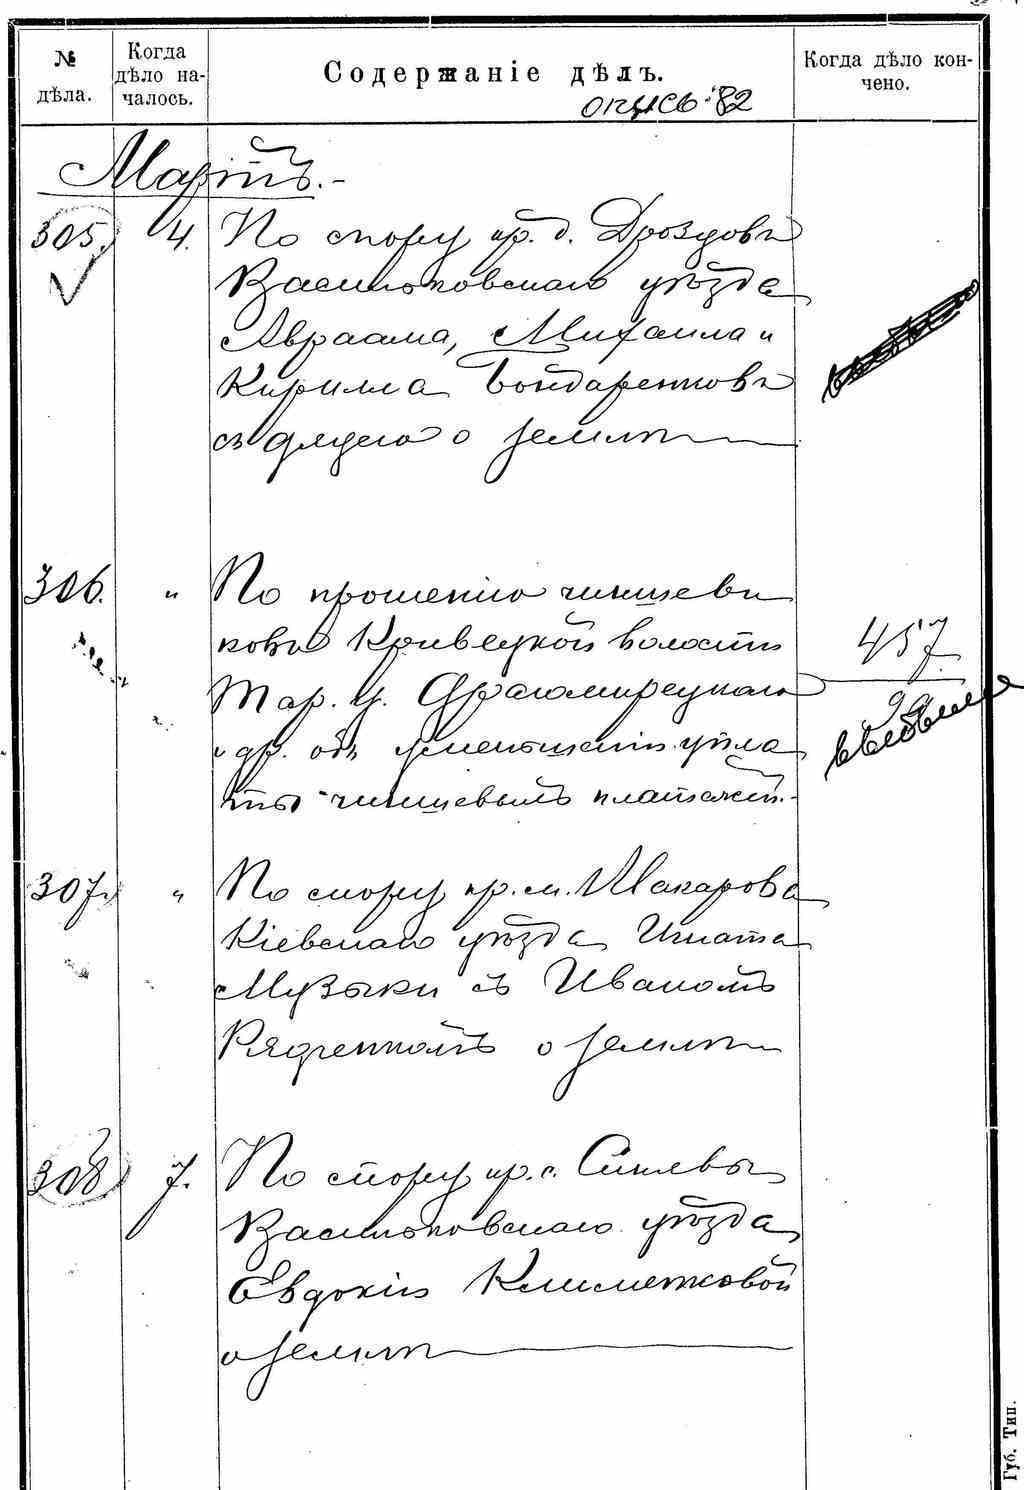 № дѣла.
Когда дѣло на-
чалось.
Содержаніе дѣлъ.
Когда дѣло кон-
чено.
опись 82
Мартъ.-
305. 4. По спору кр. д. Дроздовъ
Васильковскаго уѣзда
Авраама, Михаила и
Кирилла Бондаренковъ
съ дядею о землѣ
306. " По прошенію чиншеви
ковъ Кривецкой волости
Тар. у.
и др. объ уменьшеніи упла
ты чиншевыхъ платежей.-
457
99
выбыло
307. " По спору кр. м. Макарова
Кіевскаго уѣзда Игната
Музыки съ Иваномъ
Рядченкомъ о землѣ
308 7. По спору кр. с.
Васильковскаго уѣзда
Евдокіи Клименковой
о землѣ
Губ. Тип.